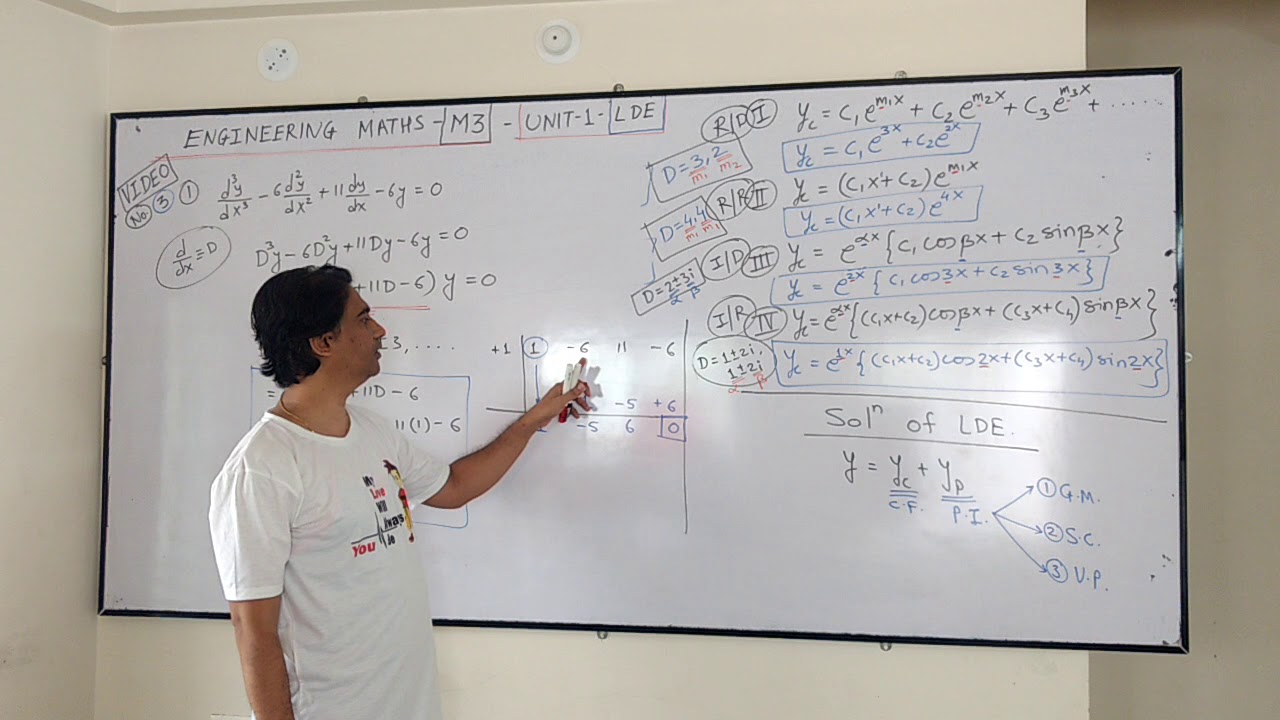 ENGINEERING MATHS - M3 - UNIT-1 - LDE
VIDEO
No. 3
① d³y/dx³ - 6 d²y/dx² + 11 dy/dx - 6y = 0
d/dx ≡ D
D³y - 6D²y + 11Dy - 6y = 0
+ 11D - 6) y = 0
3, ....
= + 11D - 6
11(1) - 6
+1 | 1 -6 11 -6
-5 +6
-5 6 0
R/D I y_c = c₁e^{m₁x} + c₂e^{m₂x} + c₃e^{m₃x} + ......
D = 3, 2
m₁ m₂
y_c = c₁e^{3x} + c₂e^{2x}
R/R II y_c = (c₁x + c₂)e^{m₁x}
D = 4, 4
m₁ m₁
y_c = (c₁x + c₂)e^{4x}
I/D III y_c = e^{αx} {c₁ cosβx + c₂ sinβx}
D = 2 ± 3i
α β
y_c = e^{2x} {c₁ cos3x + c₂ sin3x}
I/R IV y_c = e^{αx} {(c₁x + c₂) cosβx + (c₃x + c₄) sinβx}
D = 1 ± 2i,
1 ± 2i
α β
y_c = e^{1x} {(c₁x + c₂) cos2x + (c₃x + c₄) sin2x}
Solⁿ of LDE.
y = y_c + y_p
C.F. P.I.
① G.M.
② S.C.
③ V.P.
My
Love
Will
Always
be
YOU